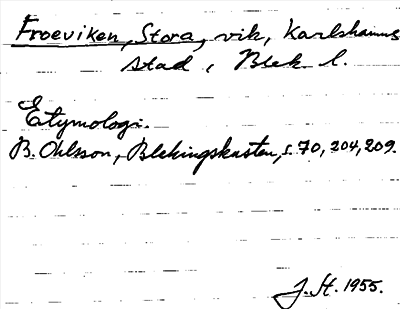 Froeviken, Stora, vik, Karlshamns
stad, Blek. l.
Etymologi.
B. Ohlsson, Blekingskusten, s. 70, 204, 209.
J. St. 1955.